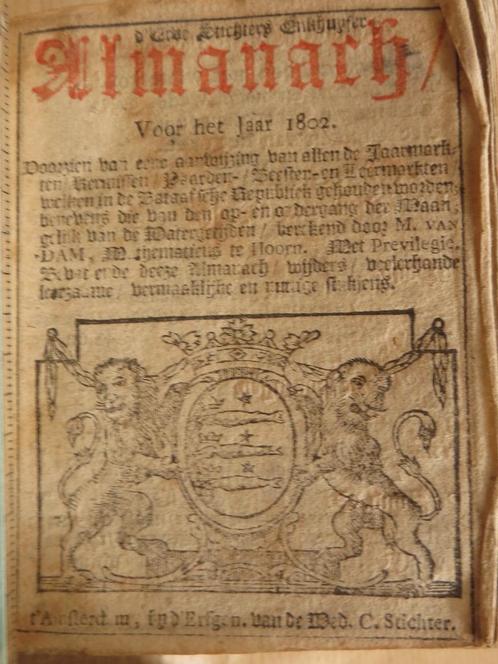 d'Erve Stichters Enkhuyser
Almanach/
Voor het Jaar 1802.
Voorzien van eene aanwijzing van allen de Jaarmark-
ten/ Kermissen/ Paarden-/ Beesten- en Leermarkten
welken in de Bataafsche Republiek gehouden worden;
benevens die van den op- en ondergang der Maan,
gelijk van de Watergetijden/ berekend door M. VAN
DAM, Mathematicus te Hoorn. Met Previlegie.
deeze Almanach/ wijders/ veelerhande
leerzaame/ vermaaklijke en nuttige stukjens.
t'Amsterdam, by d'Erfgen. van de Wed. C. Stichter.